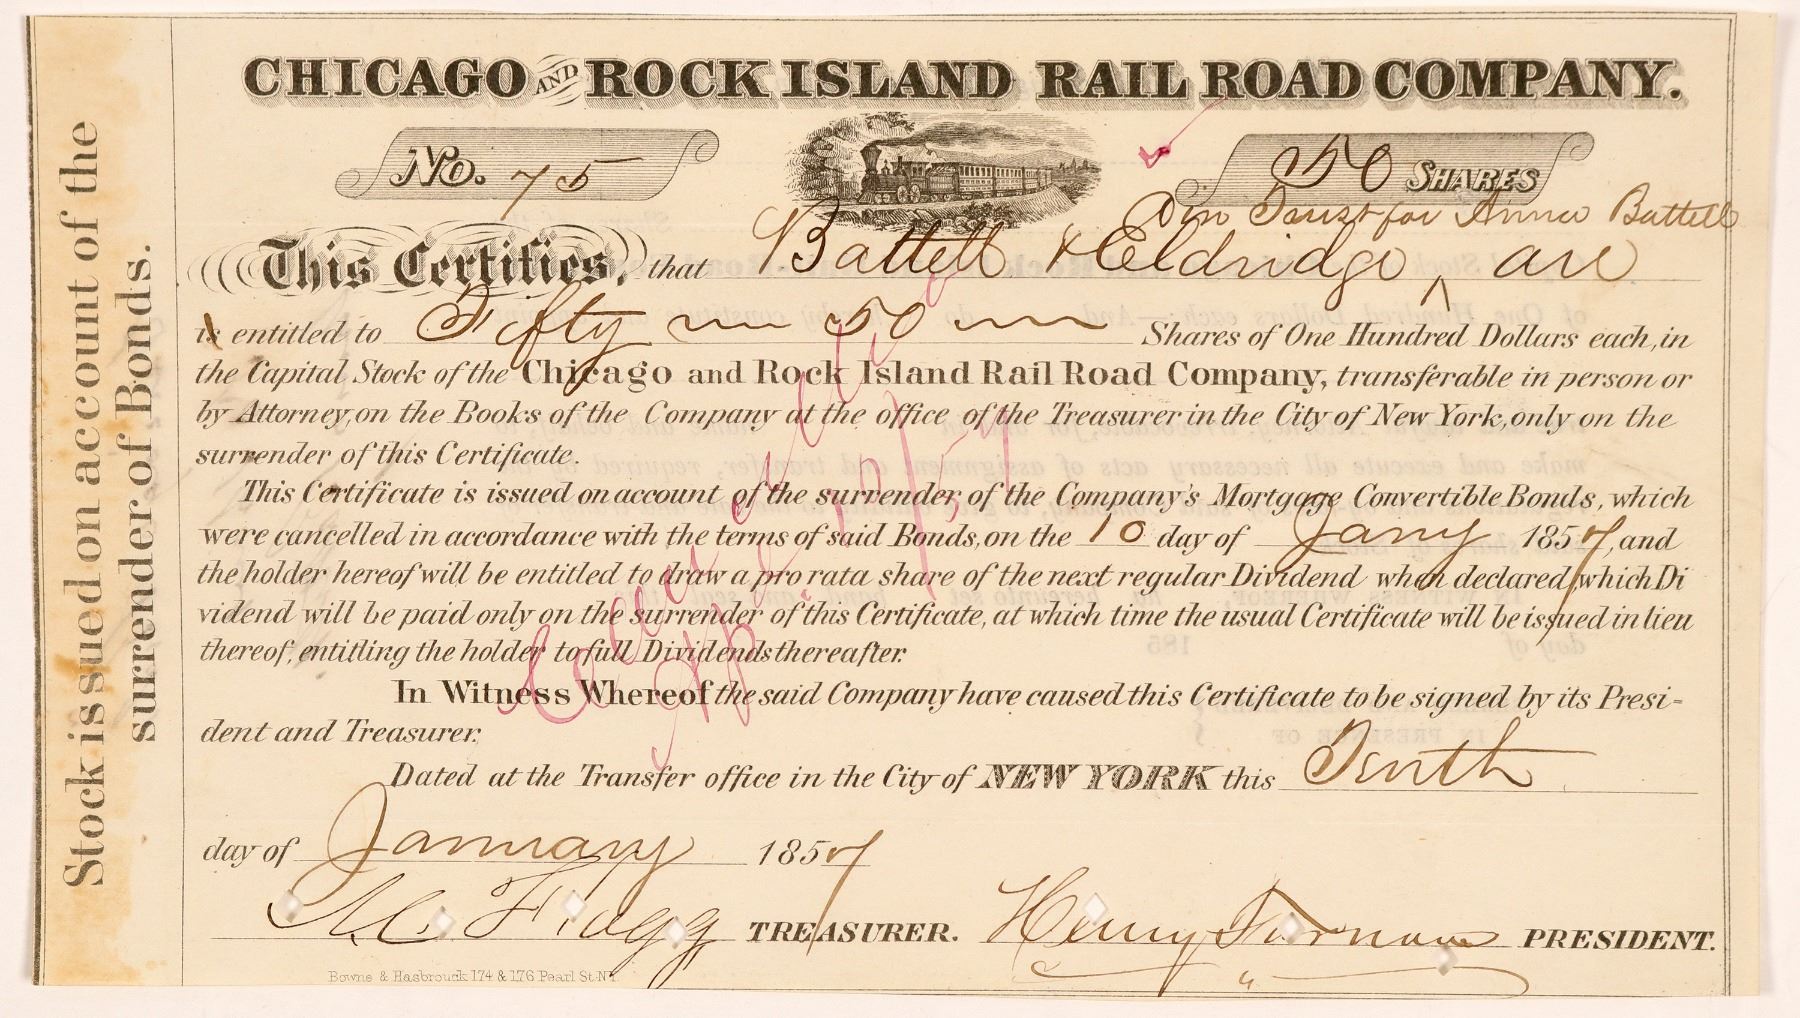 CHICAGO AND ROCK ISLAND RAIL ROAD COMPANY.
No. 75
50 SHARES
in Trust for Anna Battell
This Certifies, that Battell & Eldridge ^ are
is entitled to Fifty 50 Shares of One Hundred Dollars each, in
the Capital Stock of the Chicago and Rock Island Rail Road Company, transferable in person or
by Attorney, on the Books of the Company at the office of the Treasurer in the City of New York, only on the
surrender of this Certificate.
This Certificate is issued on account of the surrender of the Company's Mortgage Convertible Bonds, which
were cancelled in accordance with the terms of said Bonds, on the 10 day of Jany 1857, and
the holder hereof will be entitled to draw a pro rata share of the next regular Dividend when declared, which Di
vidend will be paid only on the surrender of this Certificate, at which time the usual Certificate will be issued in lieu
thereof, entitling the holder to full Dividends thereafter.
In Witness Whereof the said Company have caused this Certificate to be signed by its Presi-
dent and Treasurer.
Dated at the Transfer office in the City of NEW YORK this Tenth
day of January 1857
A. C. Flagg TREASURER. Henry Farnam PRESIDENT.
Bowne & Hasbrouck 174 & 176 Pearl St. N.Y.
Stock is issued on account of the
surrender of Bonds.
Cancelled